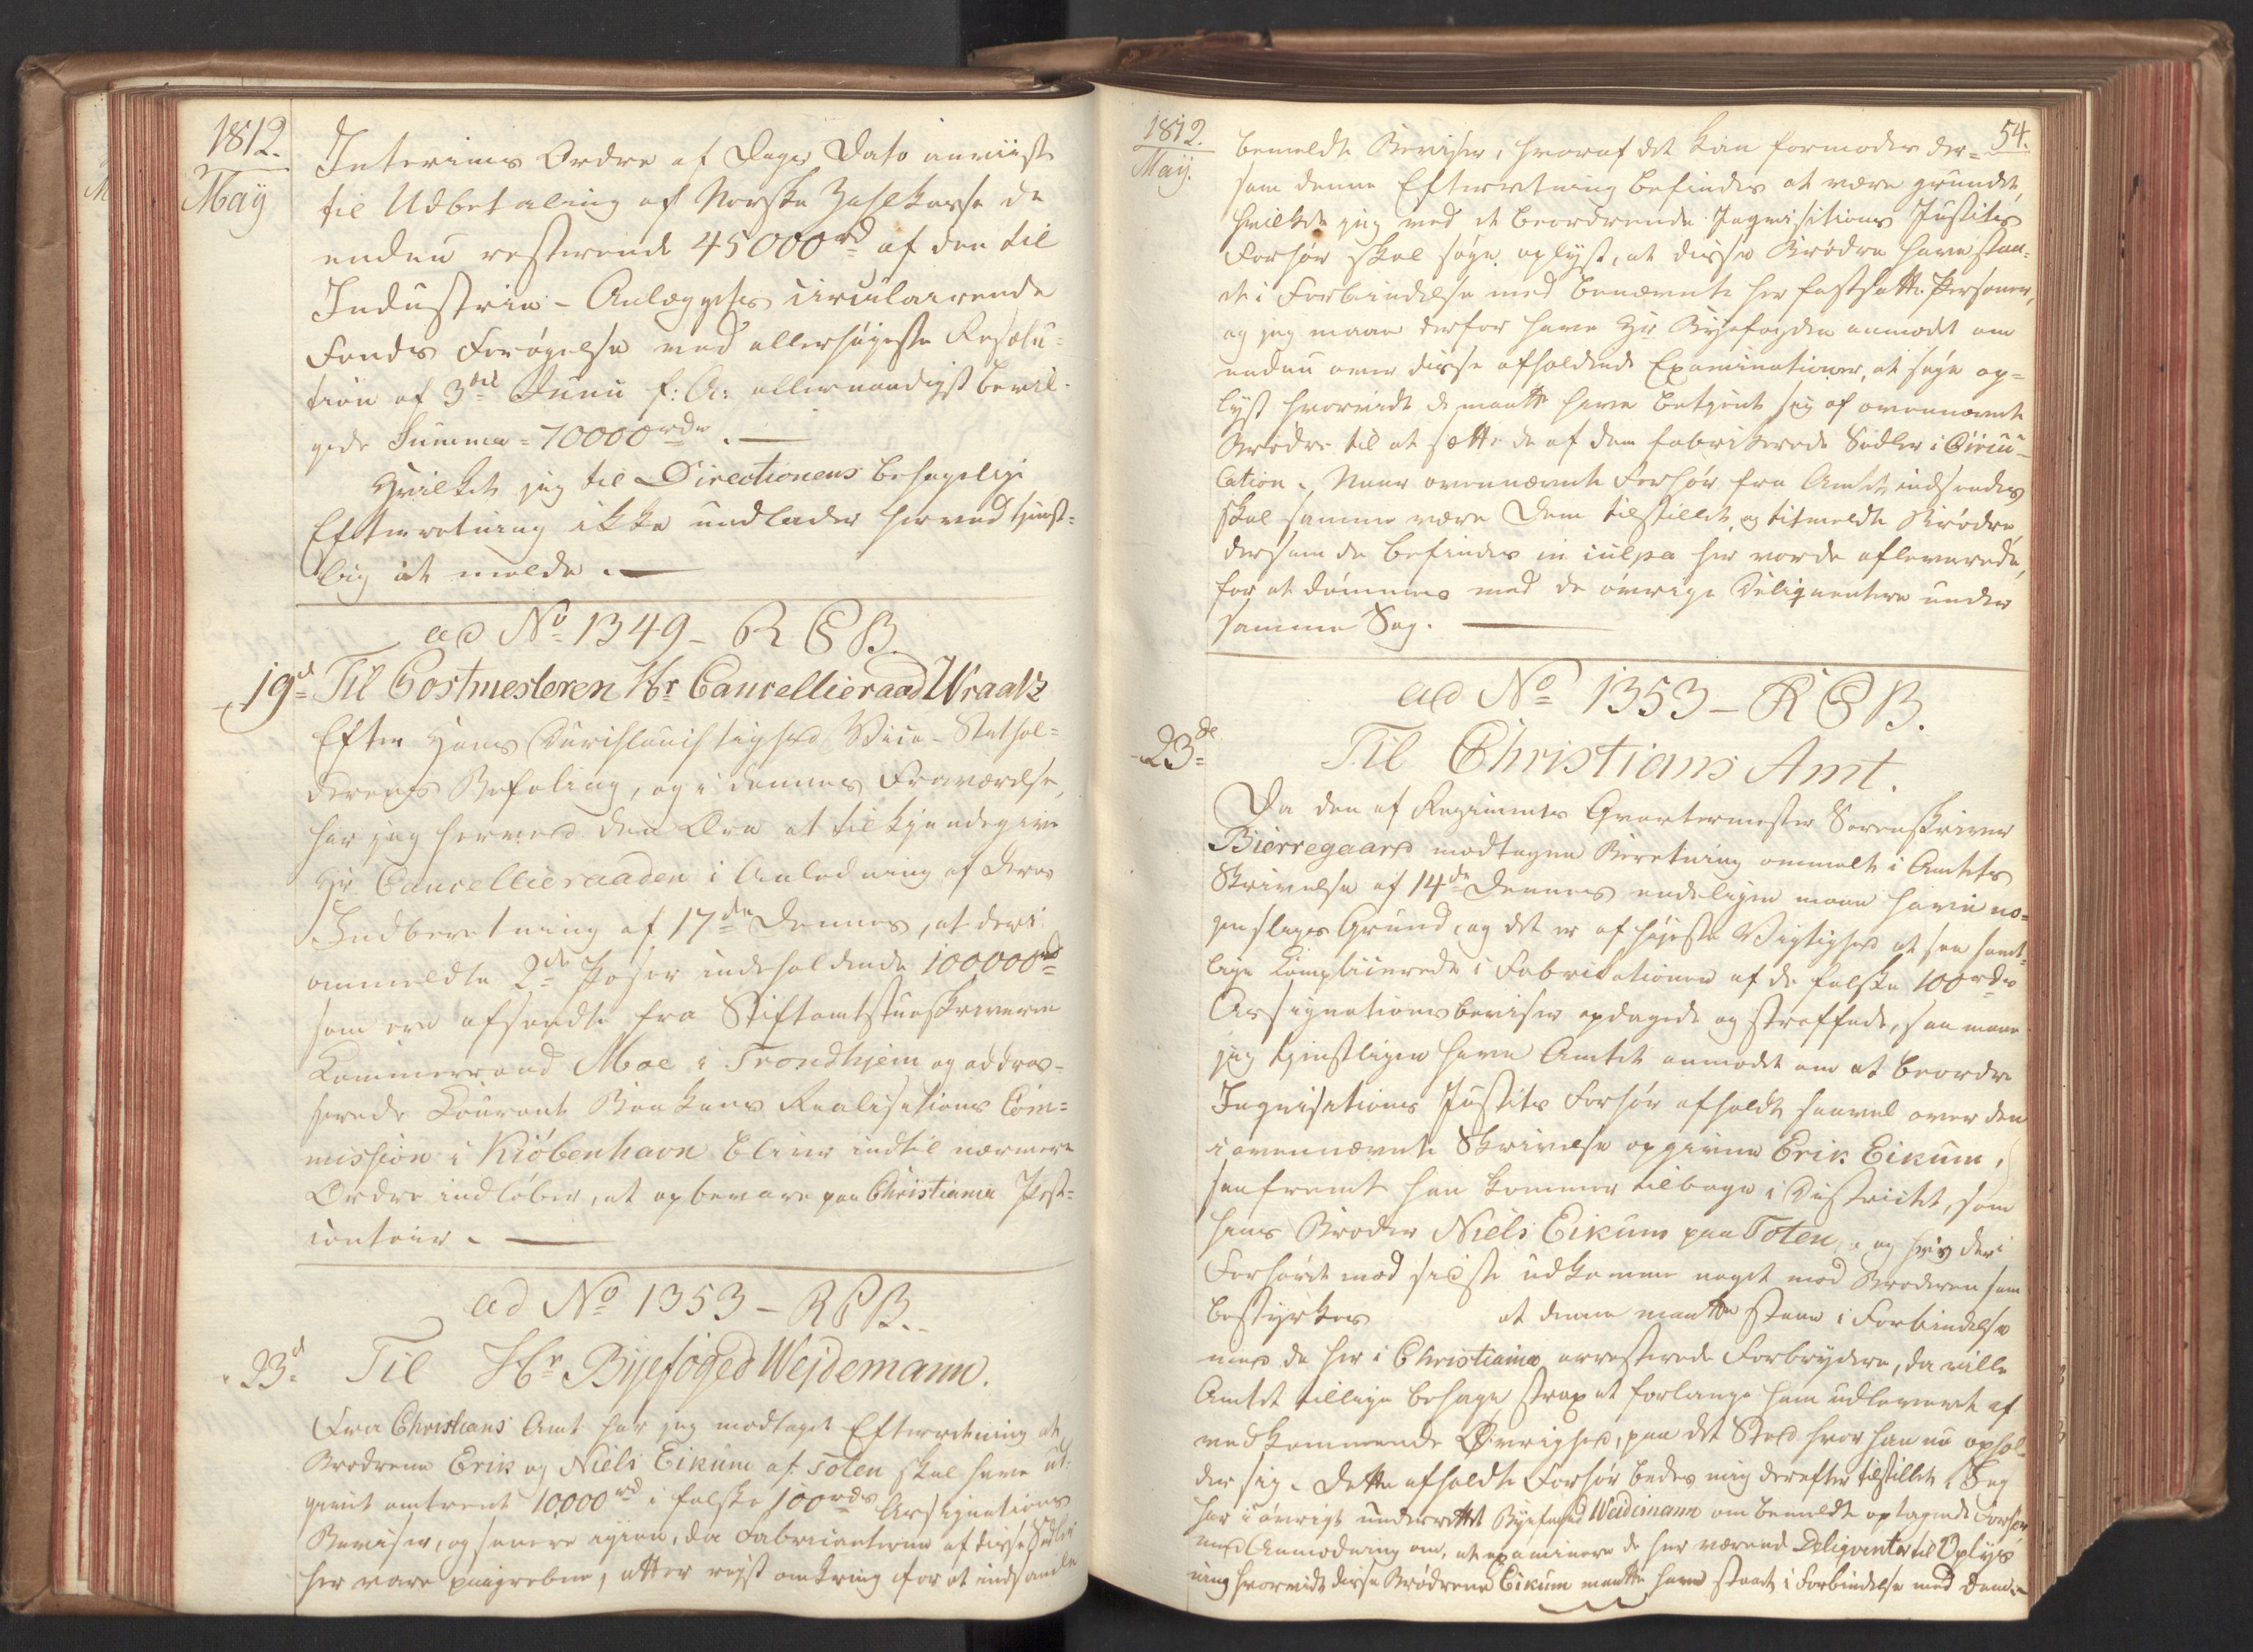 1812.
May
Interims Ordre af Dags Dato anviist
til Udbetaling af Norske Zahlkasse de
endnu resterende 45000 rd af den til
Industrie-Anlæggets circulairende
Fonds Forøgelse ved allerhøyeste Resolu-
tion af 3die Junii f: A: allernaadigst bevil-
gede Summa = 70000 rdr.
Hvilket jeg til Directionens behagelige
Efterretning ikke undlader herved tjenst-
lig at melde.
ad No 1349 - R C B.
19d Til Postmesteren Hr Cancellieraad Wraatz
Efter Hans Durchlauchtighed Vice-Stathol-
derens Befaling, og i dennes Fraværelse,
har jeg herved den Ære at tilkjendegive
Hr. Cancellieraaden i Anledning af Deres
Indberetning af 17de Dennes, at deri
ommeldte 2de Poser indeholdende 100,000 rd
som ere afsendte fra Stiftamtstueskriveren
Kammerraad Moe i Trondhjem og addres-
serede Courant Bankens Realisations Com-
mission i Kiöbenhavn bliver indtil nærmere
Ordre indløber, at opbevare paa Christiania Post-
contoir.
ad No 1353 - R C B.
23d Til Hr Byefoged Weidemann.
Fra Christians Amt har jeg modtaget Efterretning at
Brødrene Erik og Niels Eikum af Toten skal have ud-
givet omtrent 10,000 rd i falske 100 rdrs Assignations
Beviser, og senere igien, da Fabricanterne af disse Sedler
her vare paagrebne, atter reist omkring for at indsamle
1812.
May.
54.
bemeldte Beviser, hvoraf det kan formodes der-
som denne Efterretning befindes at være grundet,
hvilket jeg ved et beordrende Inqvisitions Justits
Forhør skal søge oplyst, at disse Brødre have staa-
et i Forbindelse med benævnte her fastsatte Personer,
og jeg maae derfor have Hr. Byefogden anmodet om
endnu over disse afholdende Examinationer, at søge op-
lyst hvorvidt de maatte have betjent sig af ovennævnte
Brødre til at sætte de af dem fabrikerede Sedler i Circu-
lation. Naar ovennævnte Forhør fra Amtet indsendes
skal samme være Dem tilstillet, og titmeldte Brødre,
dersom de befindes in culpa her vorde afleverede,
for at dømmes med de øvrige Deliqventere under
samme Sag.
ad No 1353 - R C B.
23de
Til Christians Amt.
Da den af Regiments Qvartermester Sorenskriver
Bierregaard modtagne Beretning ommeldt i Amtets
Skrivelse af 14de Dennes endeligen maae have no-
genslags Grund, og det er af høieste Vigtighed at see samt-
lige Complicerede i Fabricationen af de falske 100 rdrs
Assignationsbeviser opdagede og straffede, saa maae
jeg tjenstligen have Amtet anmodet om at beordre
Inqvisitions Justits Forhør afholdt saavel over den
i ovennævnte Skrivelse opgivne Erik Eikum,
saafremt han kommer tilbage i Districtet, som
hans Broder Niels Eikum paa Toten, og hvis der i
Forhøret mod sidste udkomme noget mod Broderen som
bestyrkes at denne maatte staae i Forbindelse
med de her i Christiania arresterede Forbrydere, da ville
Amtet tillige behage strax at forlange ham udleveret af
vedkommende Øvrighed, paa det Sted hvor han nu ophol-
der sig. Dette afholdte Forhør bedes mig derefter tilstillet. Jeg
har i øvrigt underrettet Byefoged Weidemann om bemeldte optagende Forhør
med Anmodning om, at examinere de her værende Deliqventer til Oplys-
ning hvorvidt disse Brødrene Eikum maatte have staaet i Forbindelse med dem.